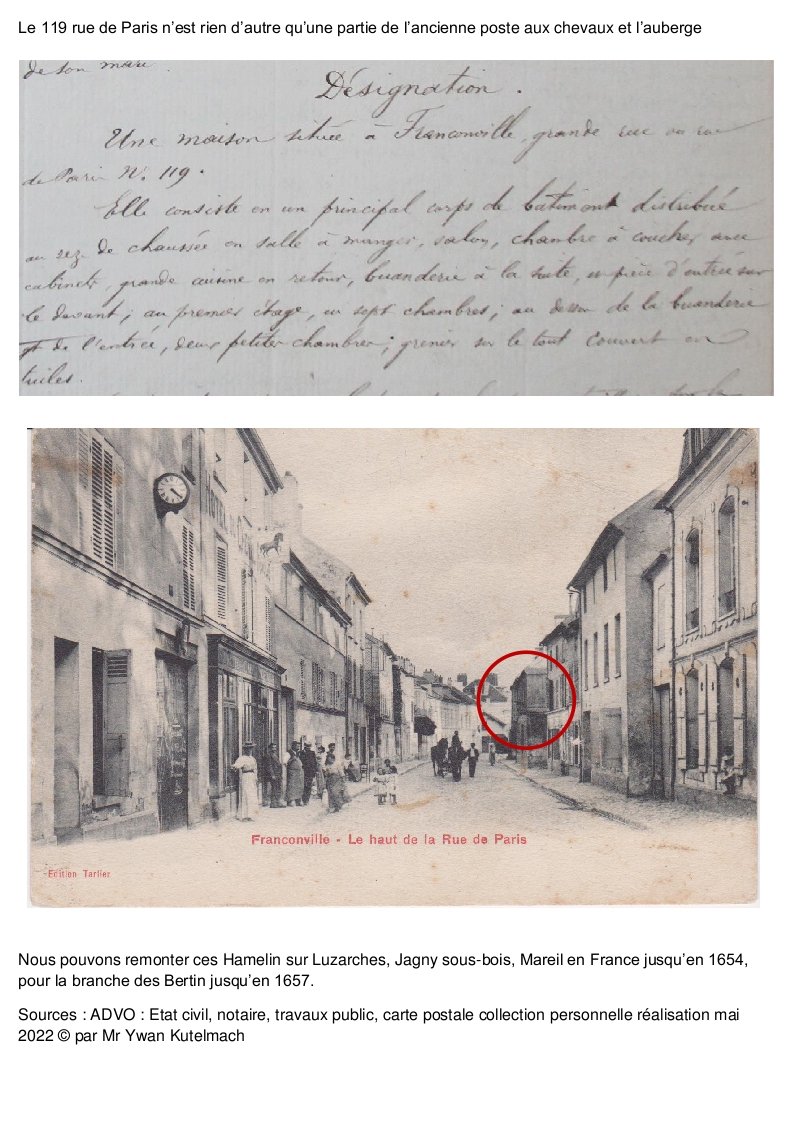 Le 119 rue de Paris n’est rien d’autre qu’une partie de l’ancienne poste aux chevaux et l’auberge
de son mari.
Désignation.
Une maison située à Franconville, grande rue ou rue
de Paris N. 119.
Elle consiste en un principal corps de batiment distribué
au rez de chaussée en salle à manger, salon, chambre à coucher avec
cabinets, grande cuisine en retour, buanderie à la suite, pièce d'entrée sur
le devant; au premier étage, en sept chambres; au dessus de la buanderie
et de l'entrée, deux petites chambres; grenier sur le tout couvert en
tuiles.
Franconville - Le haut de la Rue de Paris
Edition Tarlier
Nous pouvons remonter ces Hamelin sur Luzarches, Jagny sous-bois, Mareil en France jusqu’en 1654,
pour la branche des Bertin jusqu’en 1657.
Sources : ADVO : Etat civil, notaire, travaux public, carte postale collection personnelle réalisation mai
2022 © par Mr Ywan Kutelmach